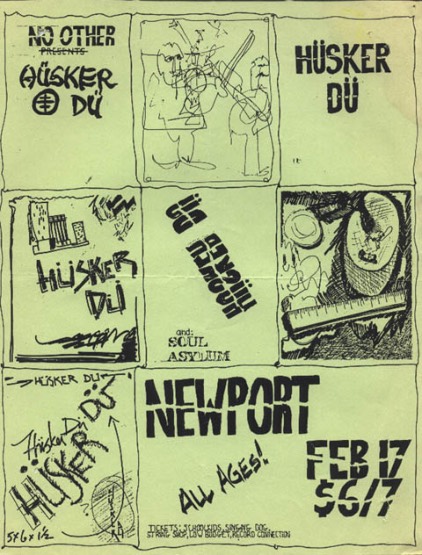 NO OTHER
PRESENTS
HÜSKER
DÜ
HÜSKER
DÜ
HÜSKER
DÜ
HÜSKER
DÜ
and:
SOUL
ASYLUM
HÜSKER DÜ
Hüsker Dü
HÜSKER DÜ
5x6x1½
NEWPORT
ALL AGES!
FEB 17
$6/7
TICKETS: SCHOOLKIDS, SINGING DOG,
STRING SHOP, LOW BUDGET, RECORD CONNECTION